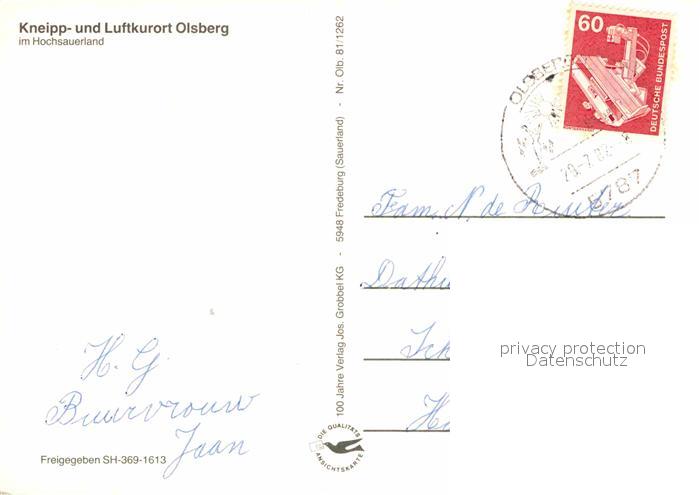 Kneipp- und Luftkurort Olsberg
im Hochsauerland
H. G.
Buurvrouw
Jaan
Freigegeben SH-369-1613
100 Jahre Verlag Jos. Grobbel KG - 5948 Fredeburg (Sauerland) - Nr. Olb. 81/1262
DIE QUALITÄTS
ANSICHTSKARTE
60
DEUTSCHE BUNDESPOST
5787
Fam. N. de Ruiter
privacy protection
Datenschutz